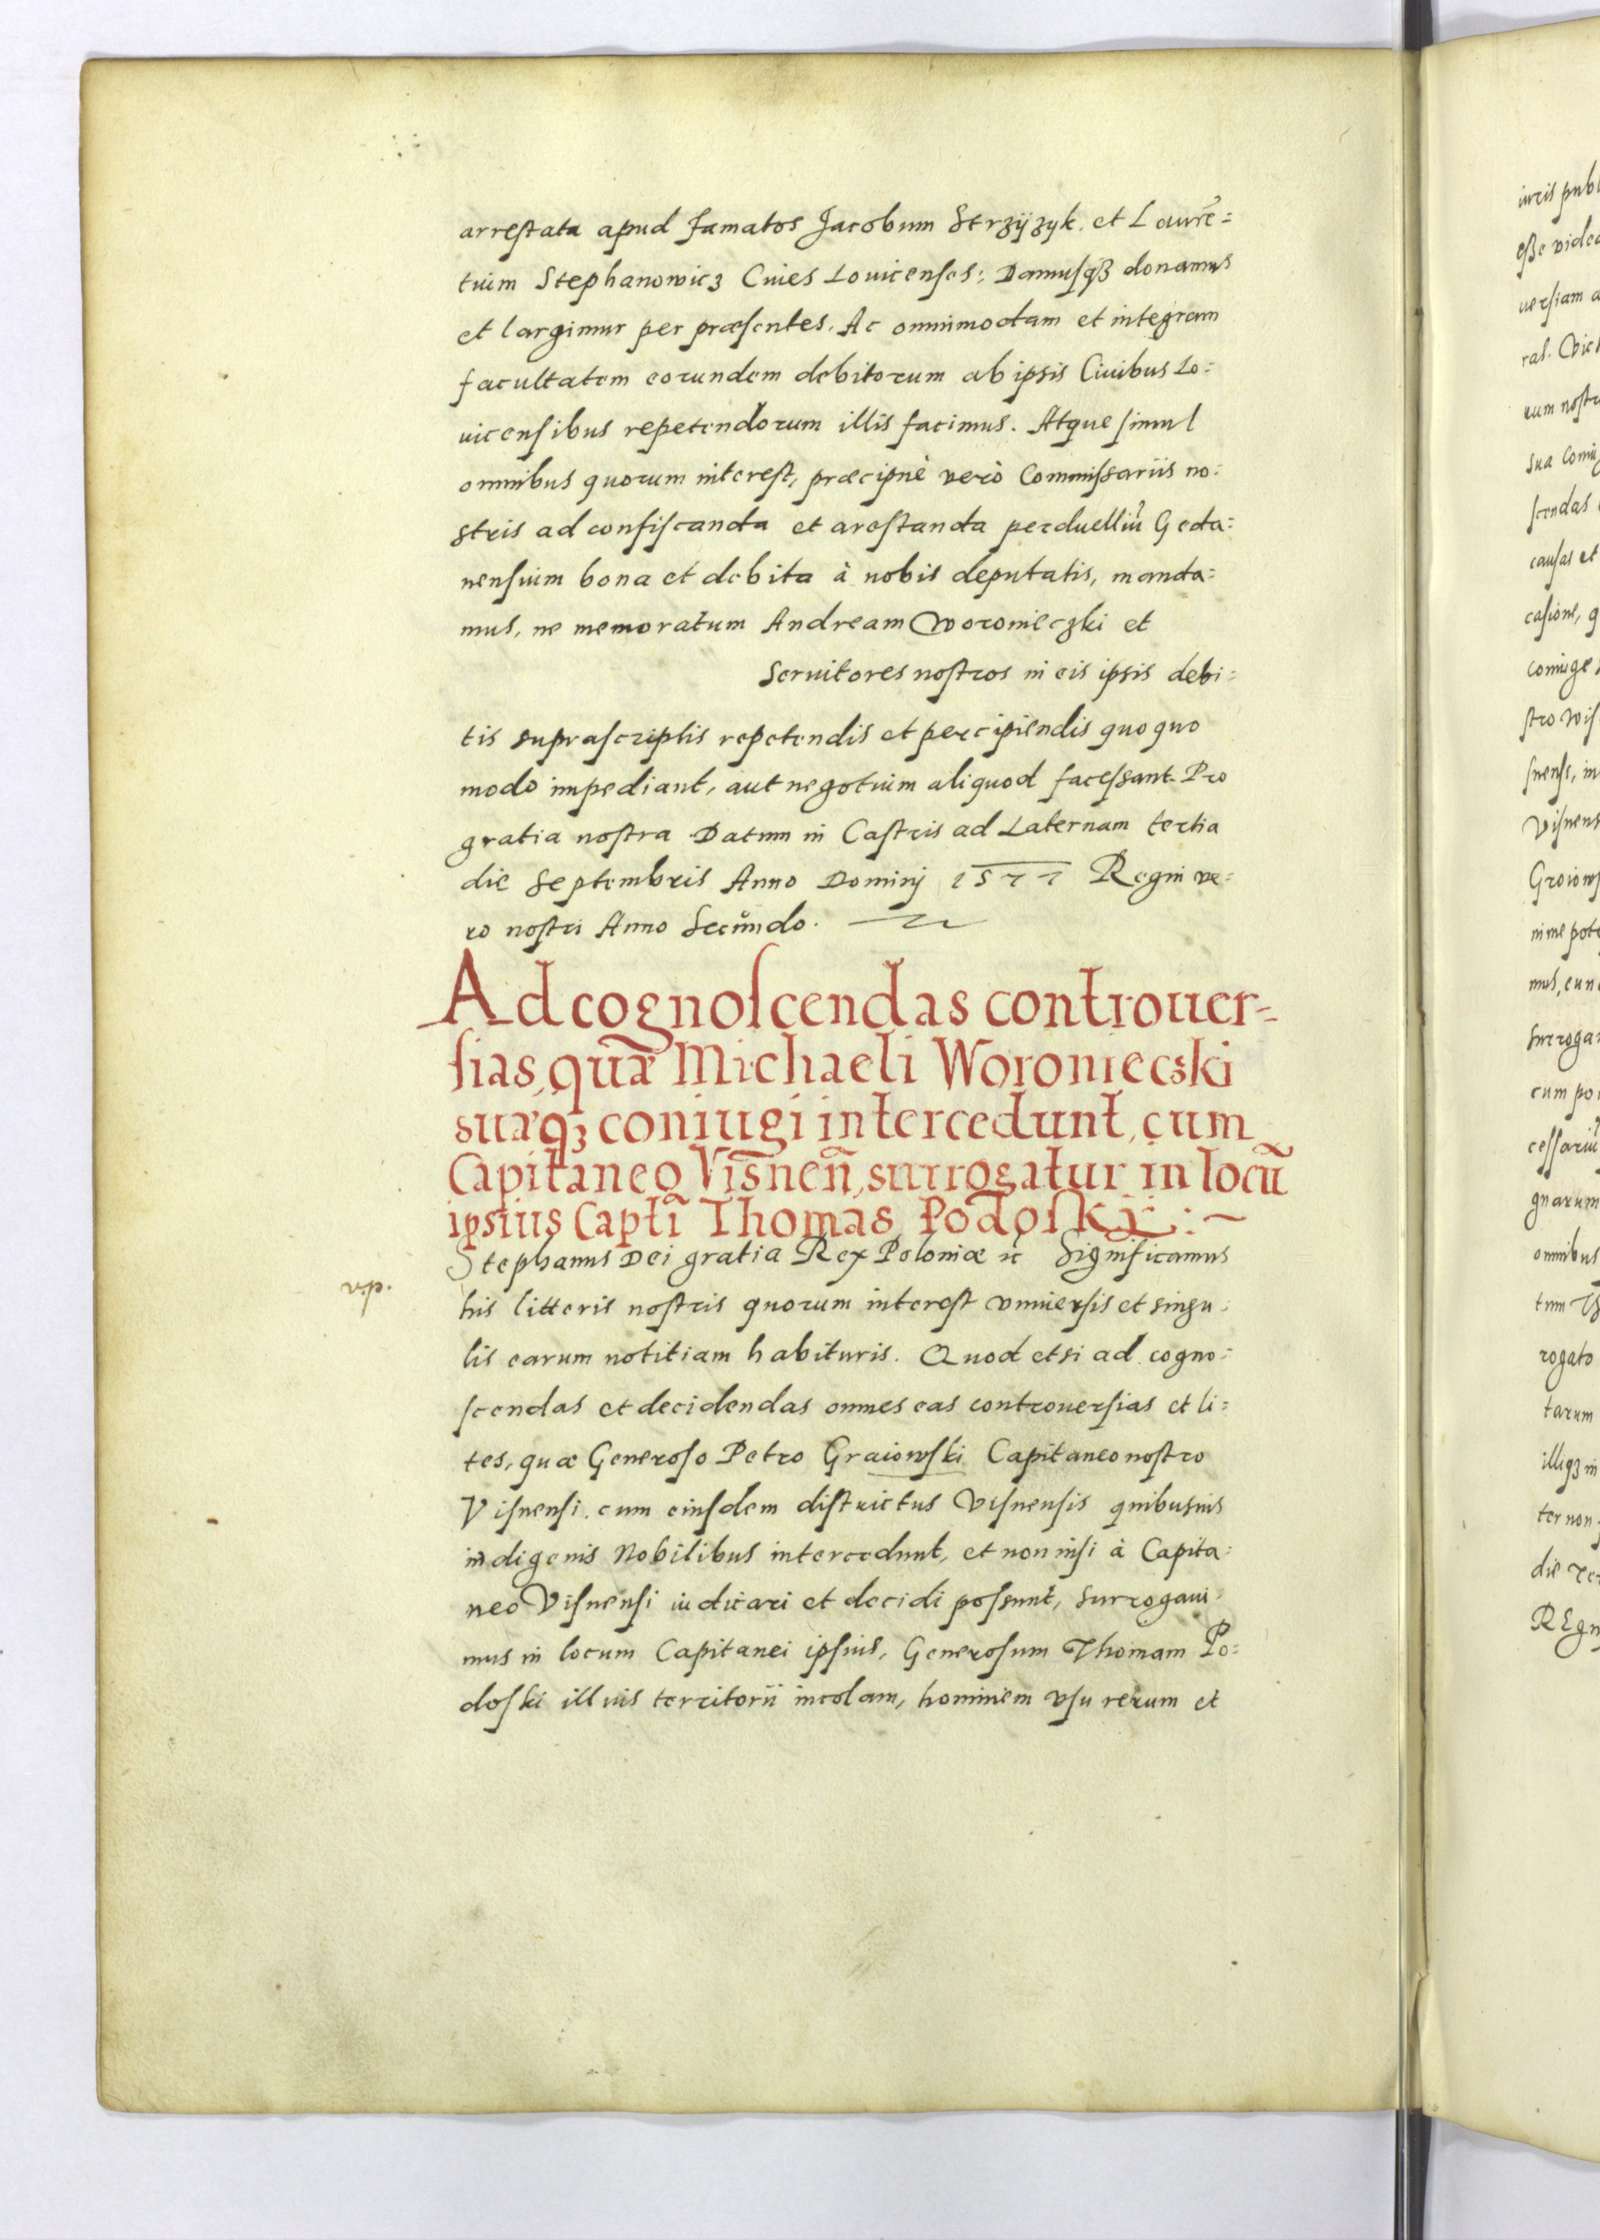 arrestata apud famatos Jacobum Strzÿzyk. et Laure͂=
tium Stephanowicz Ciues Louicenses; Damusqȝ donamus
et largimur per præsentes. Ac omnimodam et integram
facultatem eorundem debitorum ab ipsis Ciuibus Lo=
uicensibus repetendorum illis facimus. Atque simul
omnibus quorum interest, præcipuè verò Commissariis no=
stris ad confiscanda et arestanda perduelliu͂ Geda=
nensium bona et debita à nobis deputatis, manda=
mus, ne memoratum Andream Woronieczki et
Seruitores nostros in eis ipsis debi=
tis suprascriptis repetendis et percipiendis quoquo
modo impediant, aut negotium aliquod facessant. Pro
gratia nostra Datum in Castris ad Laternam tertia
die Septembris Anno Dominj 1577 Regni ve=
ro nostri Anno Secŭndo.
Ad cognoscendas controuer=
sias, quæ Michaeli Woroniecski
suæqȝ coniugi intercedunt, cum
Capitaneo Visnen͂, surrogatur in locu͂
ipsius Capti͂ Thomas Podoski :~
Stephanus Dei gratia Rex Poloniæ ꝛc Significamus
vip.
his litteris nostris quorum interest vniuersis et singu=
lis earum notitiam habituris. Quod etsi ad cogno=
scendas et decidendas omnes eas controuersias et li=
tes, quæ Generoso Petro Graiowski Capitaneo nostro
Visnensi. cum eiusdem districtus Visnensis quibusuis
indigenis Nobilibus intercedunt, et non nisi à Capita=
neo Visnensi iudicari et decidi possunt, surrogaui=
mus in locum Capitanei ipsius, Generosum Thomam Po=
doski illius territorii incolam, hominem vsu rerum et